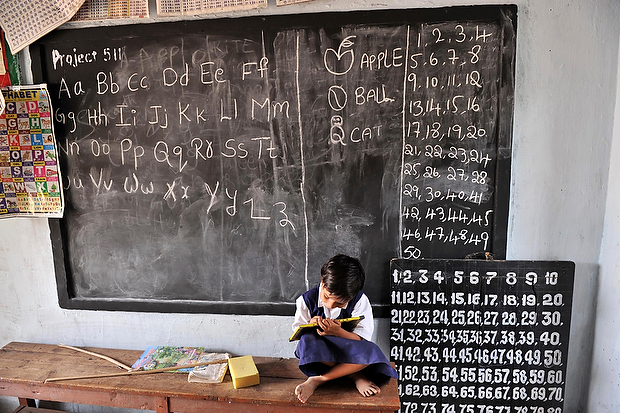 Project 511
Aa Bb Cc Dd Ee Ff
Gg Hh Ii Jj Kk Ll Mm
Nn Oo Pp Qq Rr Ss Tt
Uu Vv Ww Xx Yy Zz
APPLE
BALL
CAT
1, 2, 3, 4
5, 6, 7, 8
9, 10, 11, 12
13, 14, 15, 16
17, 18, 19, 20
21, 22, 23, 24
25, 26, 27, 28
29, 30, 40, 41
42, 43, 44, 45
46, 47, 48, 49
50.
1, 2, 3 4 5 6 7 8 9 10
11, 12, 13, 14, 15, 16, 17, 18, 19, 20,
21, 22, 23, 24, 25, 26, 27, 28, 29, 30,
31, 32, 33, 34, 35, 36, 37, 38, 39, 40,
41, 42, 43, 44, 45, 46, 47, 48, 49, 50,
51, 52, 53, 54, 55, 56, 57, 58, 59, 60,
61, 62, 63, 64, 65, 66, 67, 68, 69, 70,
72, 73, 74, 75, 76, 77, 78, 79, 80